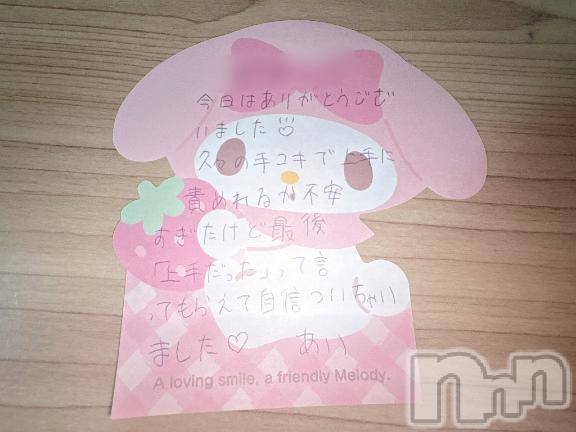 今日はありがとうござ
いました
久々の手コキで上手に
責めれるか不安
すぎたけど最後
「上手だった」って言
ってもらえて自信ついちゃい
ました♡ あい
A loving smile, a friendly Melody.
nnn